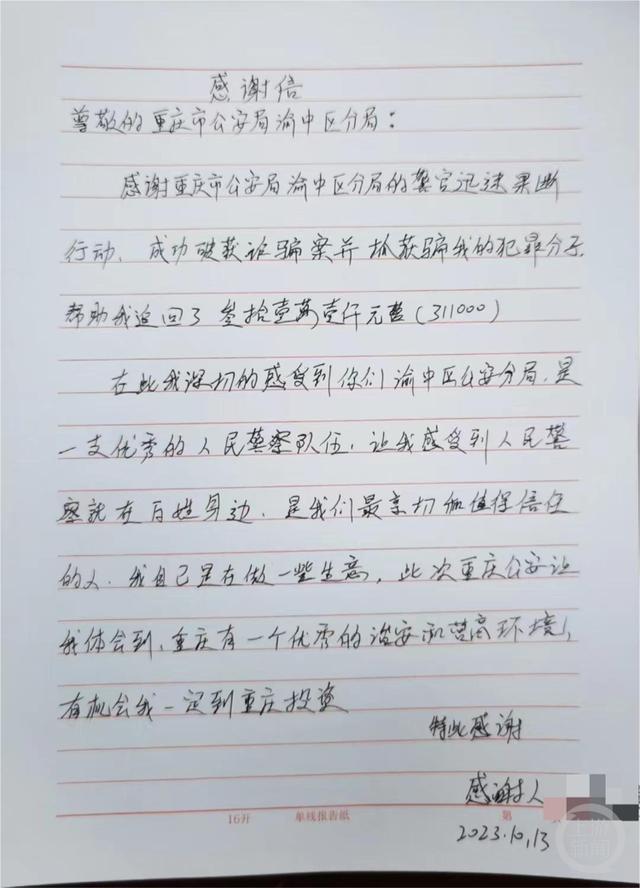 感谢信
尊敬的重庆市公安局渝中区分局：
感谢重庆市公安局渝中区分局的警官迅速果断
行动、成功破获诈骗案并抓获骗我的犯罪分子、
帮助我追回了叁拾壹萬壹仟元整（311000）
在此我深切的感受到你们渝中区公安分局、是
一支优秀的人民警察队伍、让我感受到人民警
察就在百姓身边、是我们最亲切和值得信任
的人、我自己是在做一些生意，此次重庆公安让
我体会到、重庆有一个优秀的治安和营商环境，
有机会我一定到重庆投资
特此感谢
感谢人
2023.10.13
16开 单线报告纸 第
上游新闻